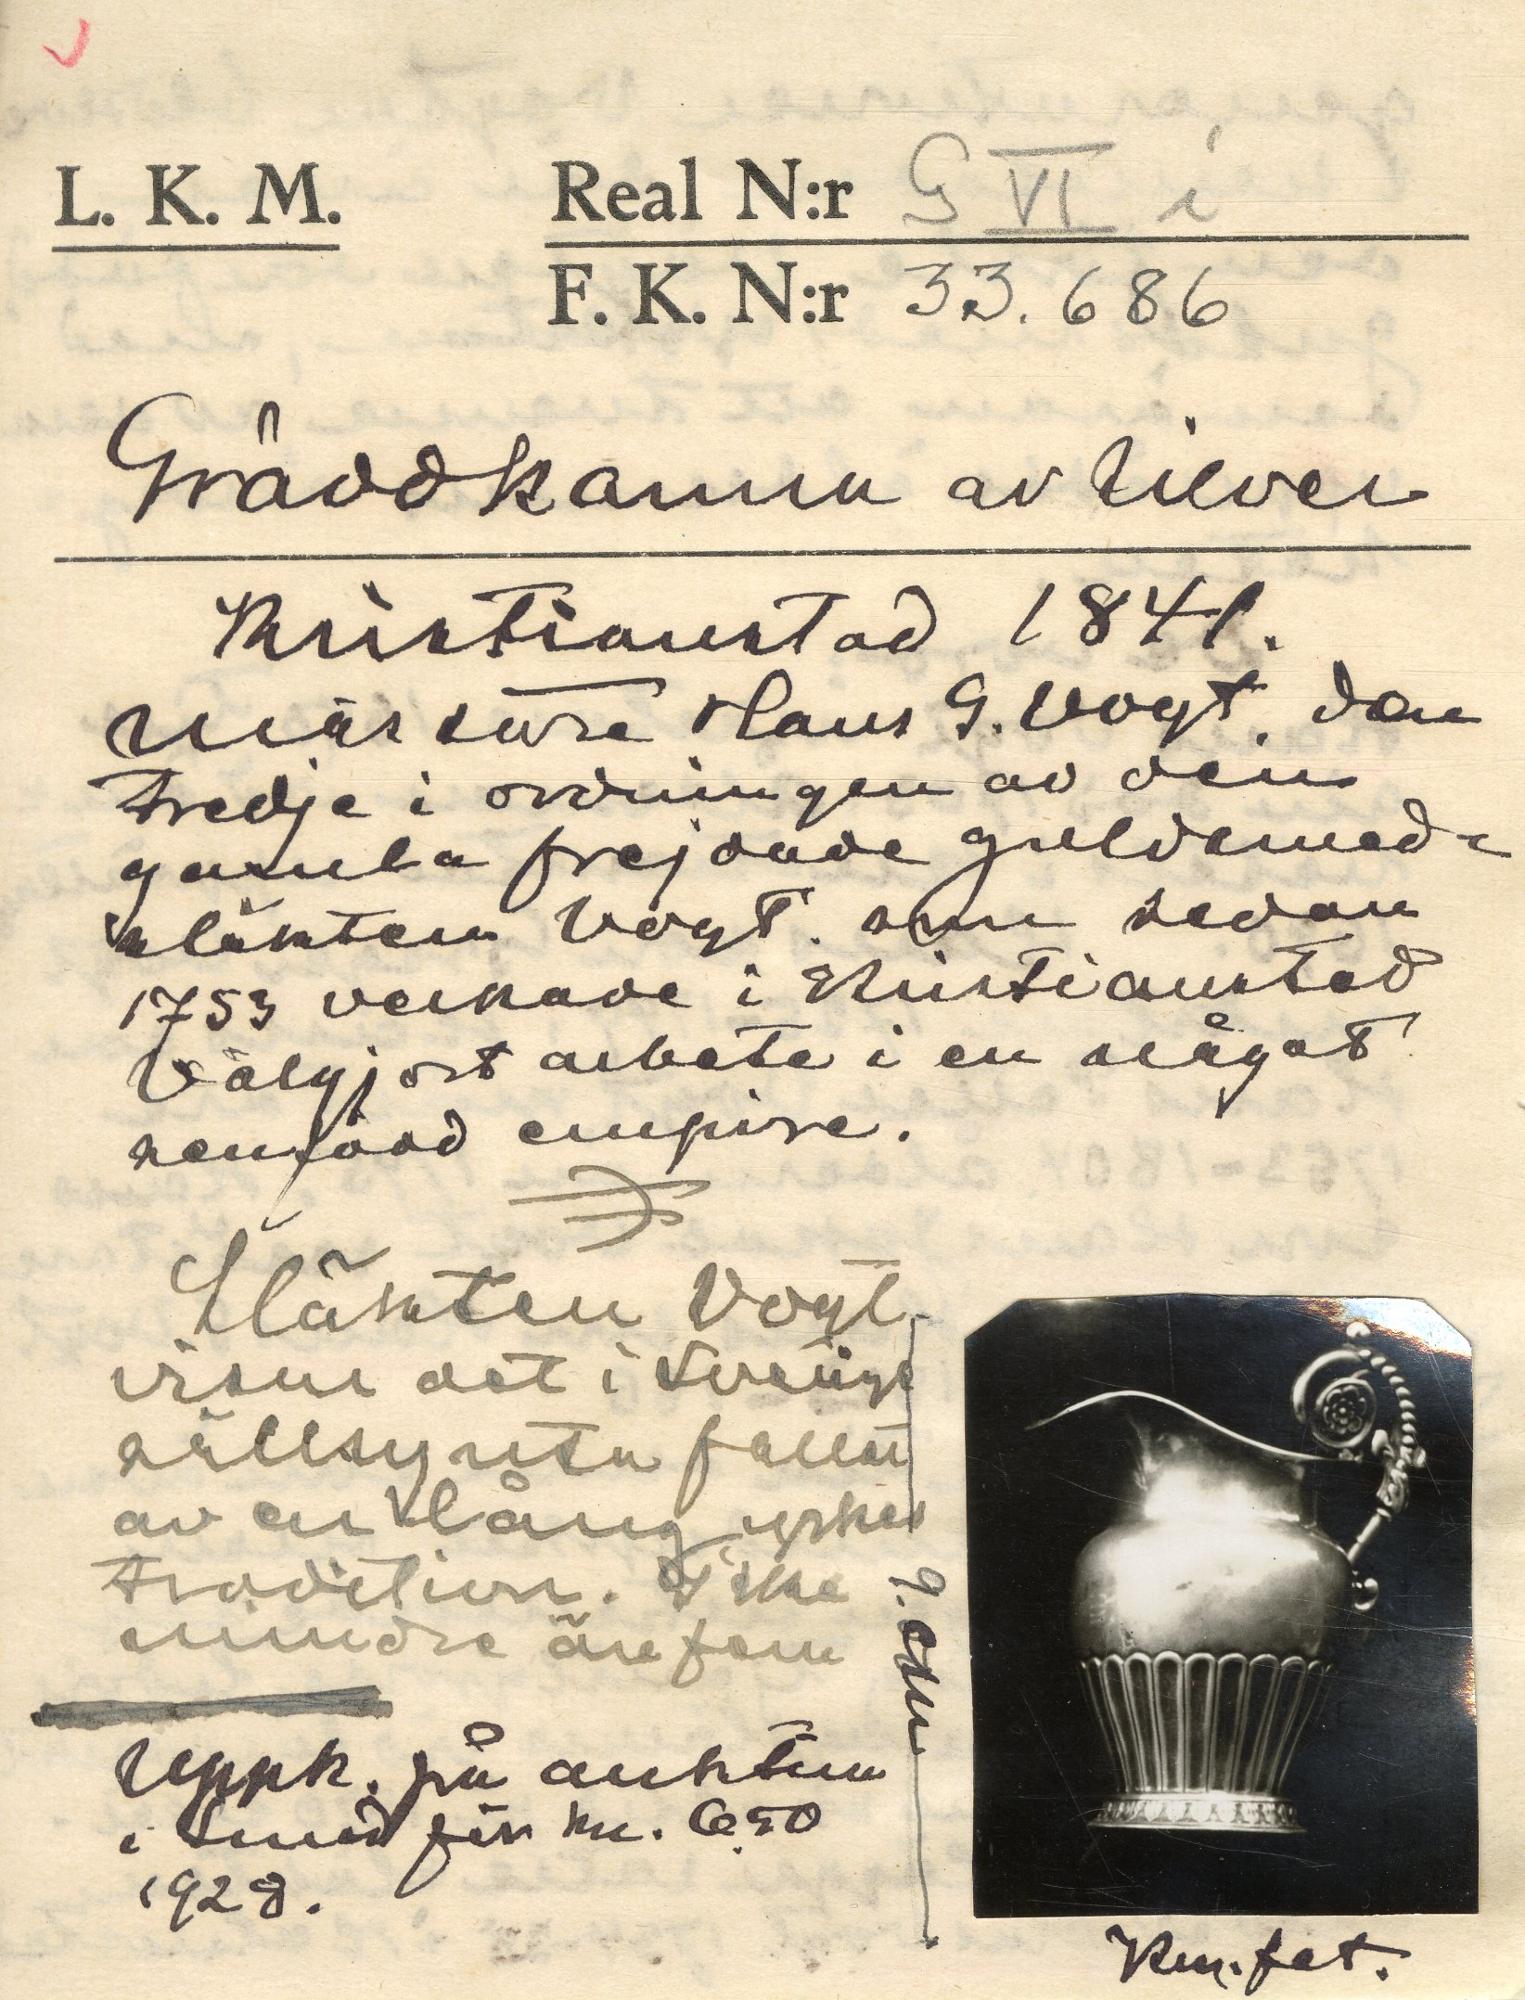 L. K. M.
Real N:r G VI i
F. K. N:r 33.686
Gräddkanna av silver
Kristianstad 1841.
Mästare Hans G. Vogt. den
tredje i ordningen av den
gamla frejdade guldsmeds
släkten Vogt. som sedan
1753 verkade i Kristianstad
Välgjort arbete i en något
senfödd empire.
Släkten Vogt
visar det i Sverige
sällsynta fallet
av en lång yrkes
tradition. Icke
mindre än fem
9. cm
Uppk. på auktion
i Lund för kr. 6.50
1928.
Km. fot.